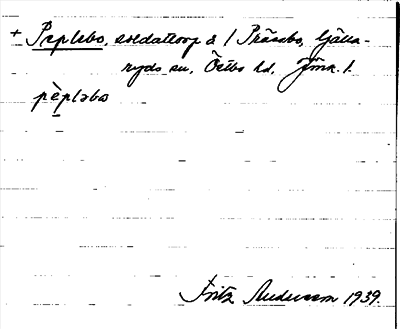 + Peplebo, soldattorp å 1 Präsebo, Gälla-
ryds sn, Östbo hd, Jönk. l.
pèpləbo
Fritz Andersson 1939.